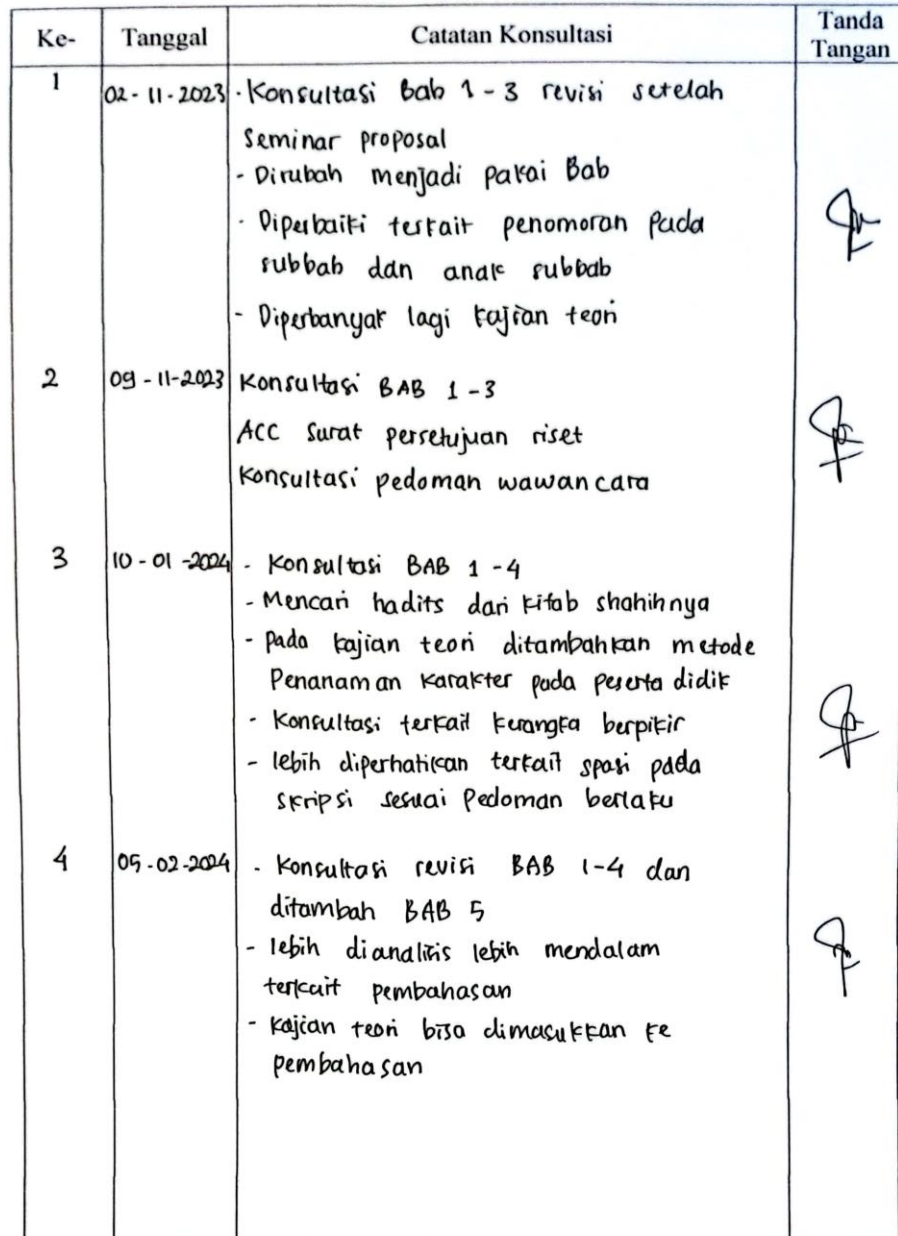 Ke- Tanggal Catatan Konsultasi Tanda Tangan
1 02-11-2023 - Konsultasi Bab 1-3 revisi setelah
Seminar proposal
- Dirubah menjadi pakai Bab
- Diperbaiki terkait penomoran pada
subbab dan anak subbab
- Diperbanyak lagi kajian teori
2 09-11-2023 Konsultasi BAB 1-3
ACC Surat persetujuan riset
Konsultasi pedoman wawancara
3 10-01-2024 - Konsultasi BAB 1-4
- Mencari hadits dari kitab shahihnya
- pada kajian teori ditambahkan metode
Penanaman karakter pada peserta didik
- Konsultasi terkait kerangka berpikir
- lebih diperhatikan terkait spasi pada
skripsi sesuai Pedoman berlaku
4 05-02-2024 - Konsultasi revisi BAB 1-4 dan
ditambah BAB 5
- lebih dianalisis lebih mendalam
terkait pembahasan
- kajian teori bisa dimasukkan ke
pembahasan